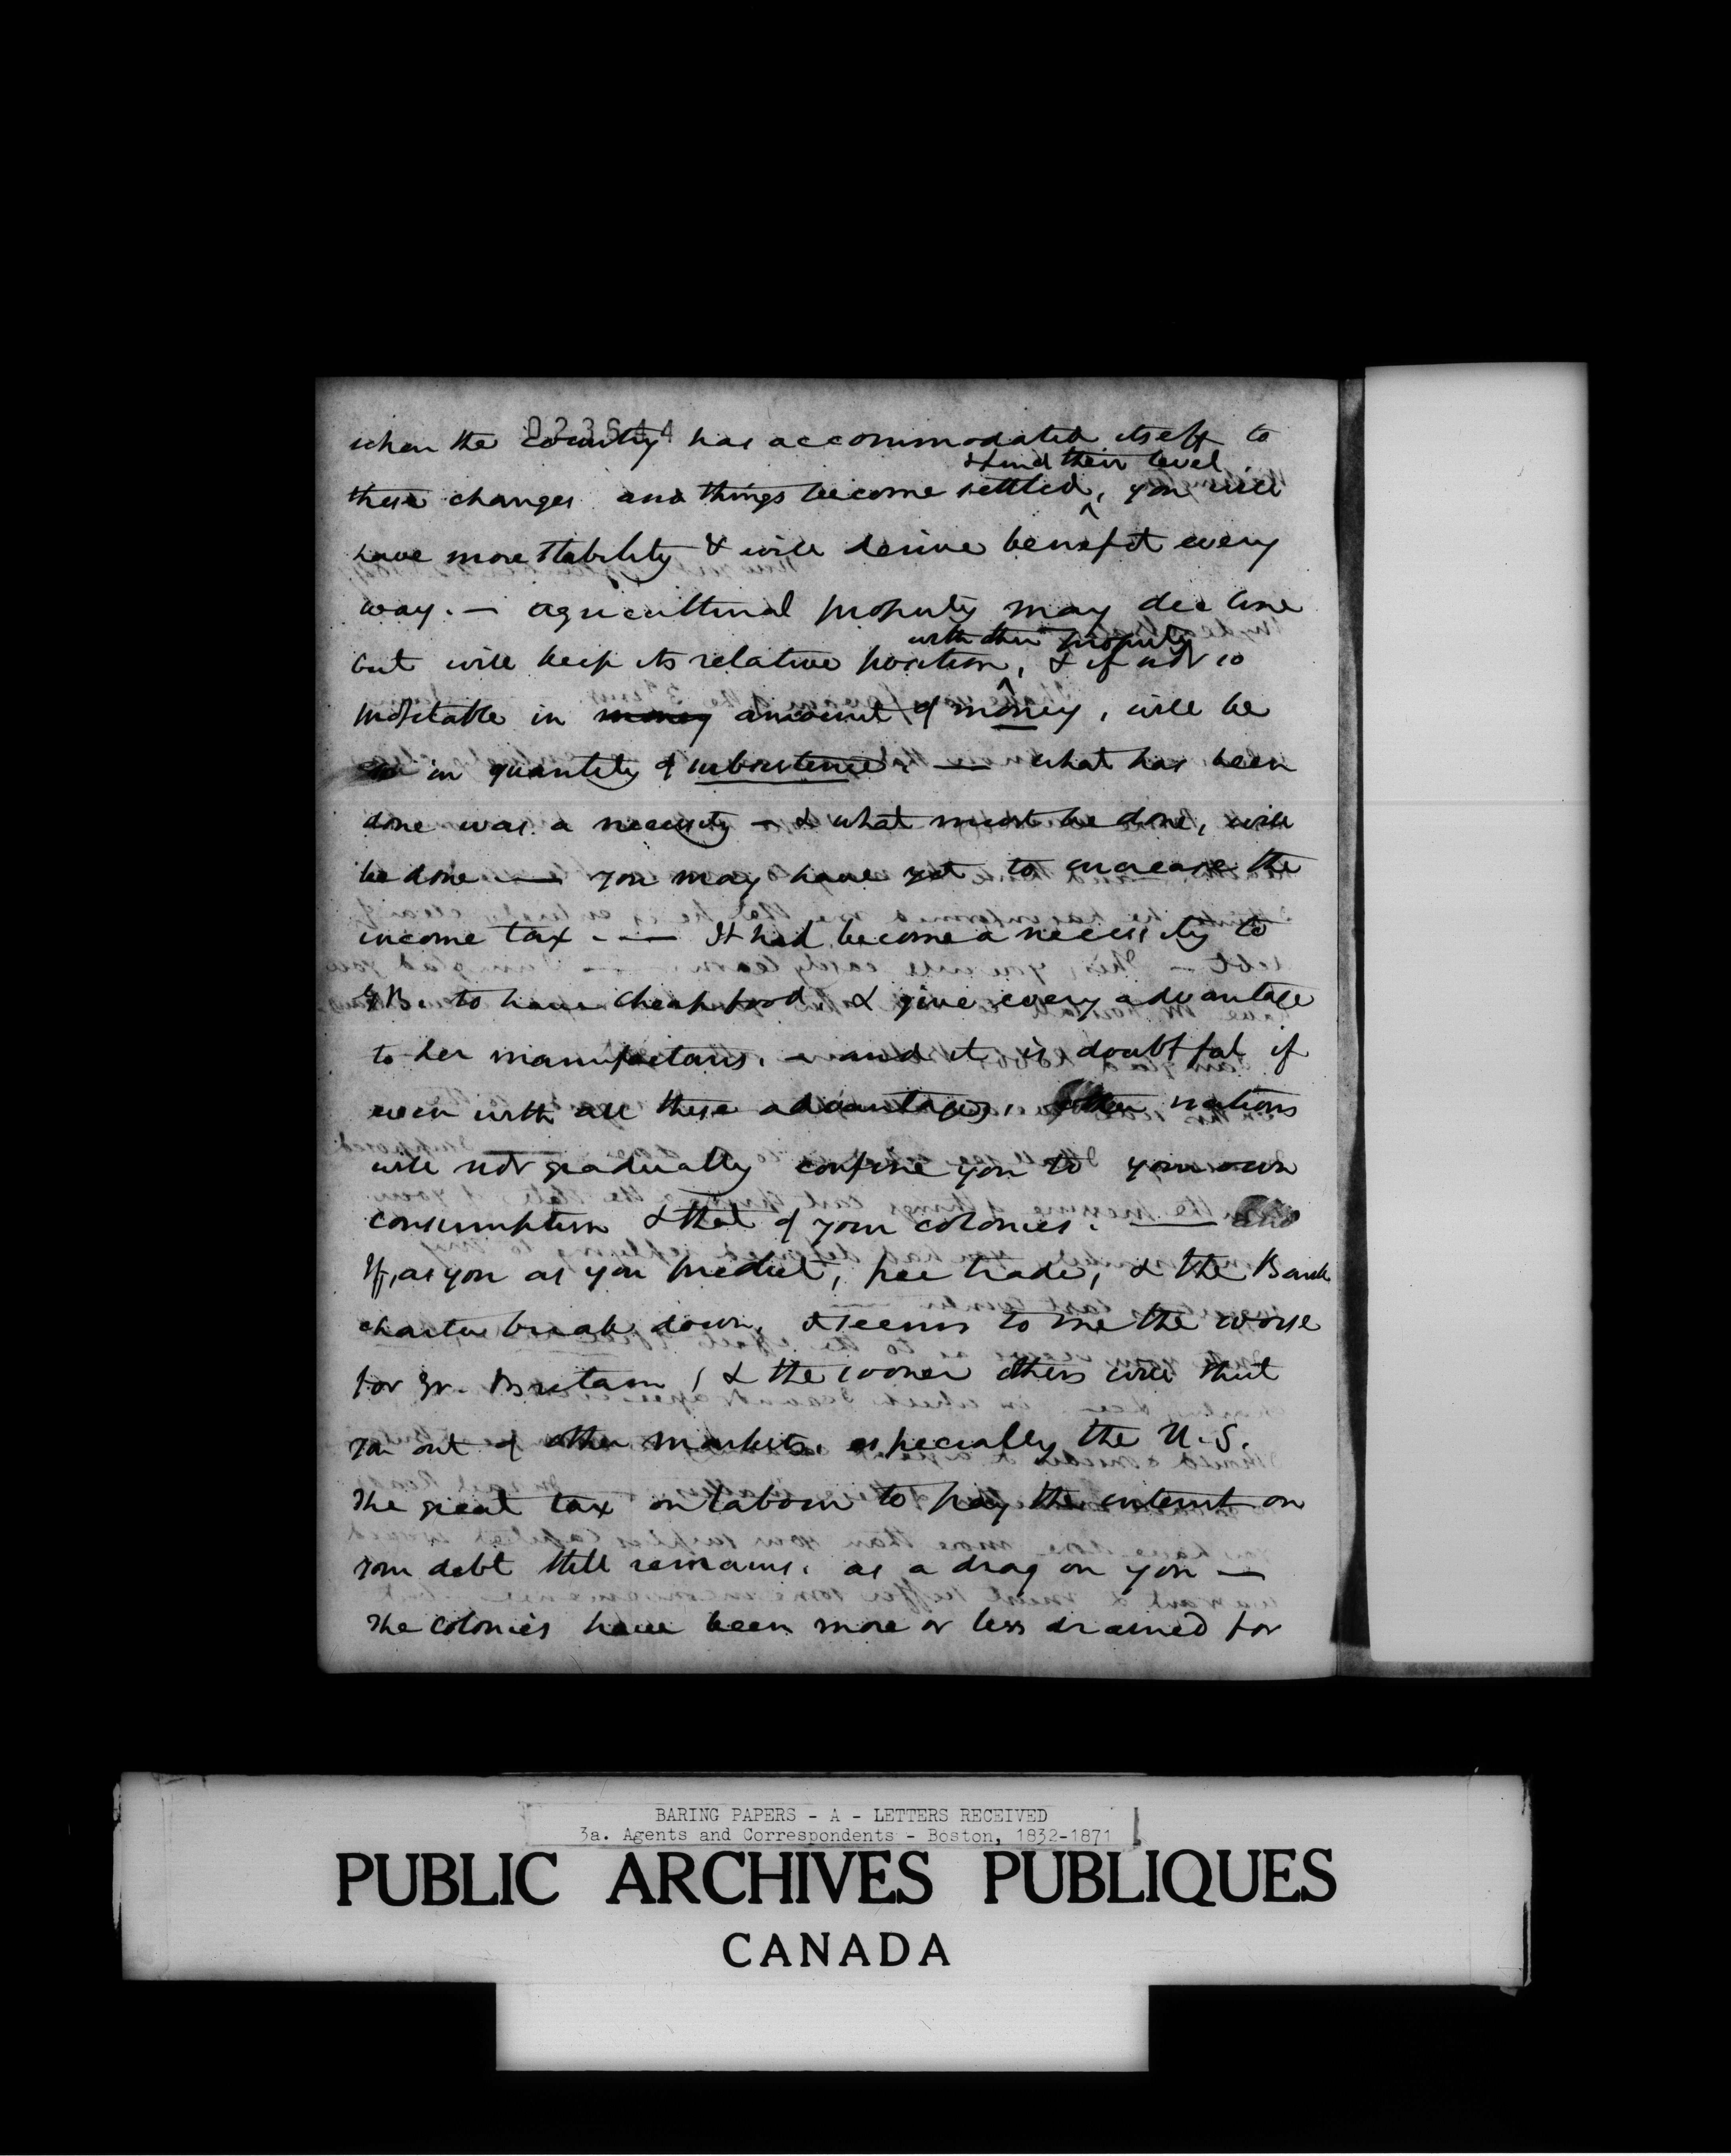 023644
when the country has accommodated itself to
& find their level
these changes and things become settled, you will
have more stability & will derive benefit every
way. — agricultural property may decline
with other property
but will keep its relative position, & if not so
profitable in money amount of money, will be
so in quantity of subsistence. — what has been
done was a necessity — & what must be done, will
be done — you may have yet to increase the
income tax. — It had become a necessity to
G B. to have cheap food & give every advantage
to her manufactures. — and it is doubtful if
even with all these advantages, other nations
will not gradually confine you to your own
consumption & that of your colonies. —
If, as you as you predict, free trade, & the Bank
charter break down, it seems to me the worse
for Gr. Britain, & the sooner others will shut
you out of other markets, especially the U.S.
The great tax on labour to pay the interest on
your debt still remains, as a drag on you —
The colonies have been more or less drained for
BARING PAPERS - A - LETTERS RECEIVED
3a. Agents and Correspondents - Boston, 1832-1871
PUBLIC ARCHIVES PUBLIQUES
CANADA